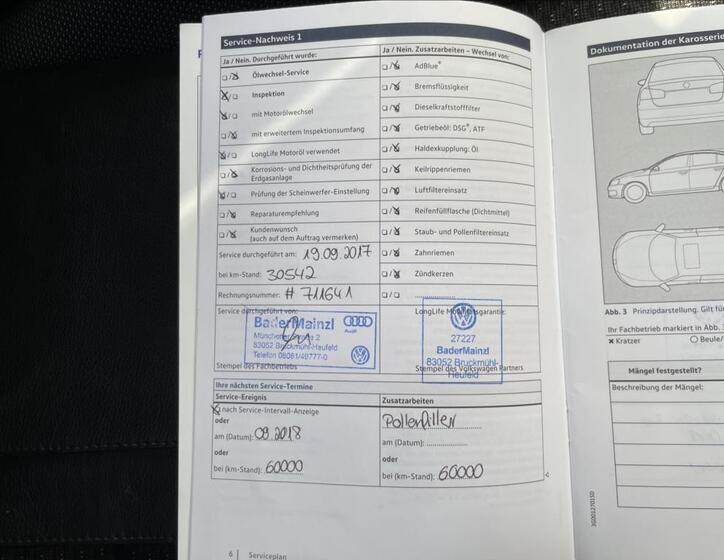 Service-Nachweis 1
Ja / Nein. Durchgeführt wurde:
Ölwechsel-Service
Inspektion
mit Motorölwechsel
mit erweitertem Inspektionsumfang
LongLife Motoröl verwendet
Korrosions- und Dichtheitsprüfung der
Erdgasanlage
Prüfung der Scheinwerfer-Einstellung
Reparaturempfehlung
Kundenwunsch
(auch auf dem Auftrag vermerken)
Service durchgeführt am: 19.09.2017
bei km-Stand: 30542
Rechnungsnummer: # 711641
Service durchgeführt von:
BaderMainzl
Audi
2
83052 Bruckmühl-Heufeld
Telefon 08061/49777-0
Stempel des Fachbetriebs
Ja / Nein. Zusatzarbeiten – Wechsel von:
AdBlue®
Bremsflüssigkeit
Dieselkraftstofffilter
Getriebeöl: DSG®, ATF
Haldexkupplung: Öl
Keilrippenriemen
Luftfiltereinsatz
Reifenfüllflasche (Dichtmittel)
Staub- und Pollenfiltereinsatz
Zahnriemen
Zündkerzen
LongLife
27227
BaderMainzl
83052 Bruckmühl-
Heufeld
Stempel des Volkswagen Partners
Ihre nächsten Service-Termine
Service-Ereignis
nach Service-Intervall-Anzeige
oder
am (Datum): 09.2018
oder
bei (km-Stand): 60000
Zusatzarbeiten
Pollenfilter
am (Datum):
oder
bei (km-Stand): 60000
6 | Serviceplan
Dokumentation der Karosserie
Abb. 3 Prinzipdarstellung. Gilt für
Ihr Fachbetrieb markiert in Abb.
Kratzer
Beule/
Mängel festgestellt?
Beschreibung der Mängel: